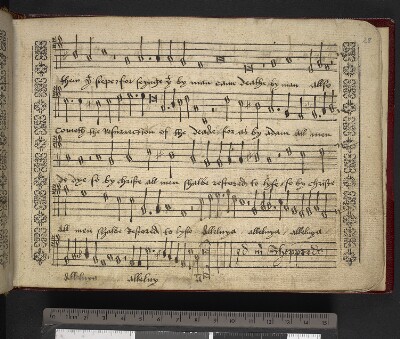 them yt slepe: for seynge yt by man cam deathe by man allso
Comethe the resurrection of the deade: for as by Adam all men
do dye so by christe all men shalbe restored to lyfe so by christe
All men shalbe restored to lyfe Alleluya alleluya, alleluya
Alleluya alleluy
qd mr Sheppard